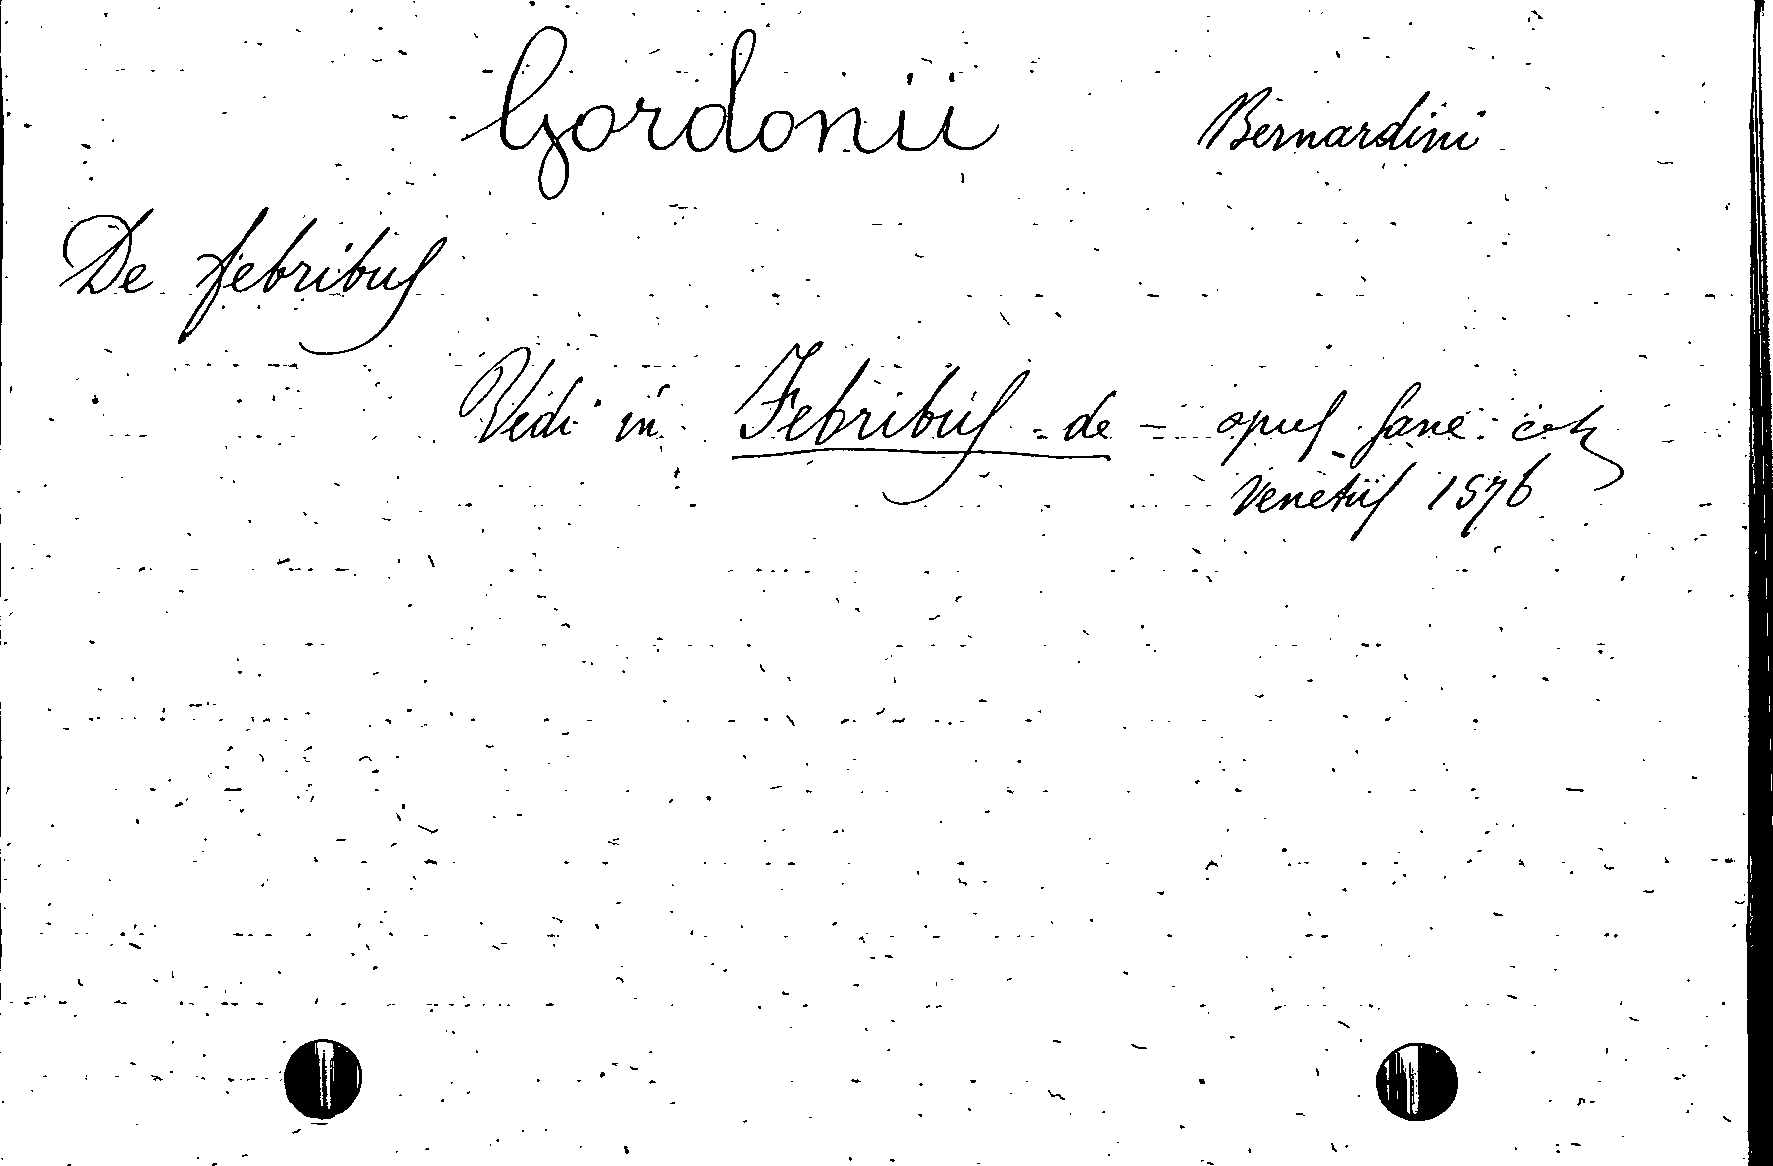 Gordonii Bernardini
De febribus
Vedi in Febribus - de - opus sane etc
Venetiis 1576